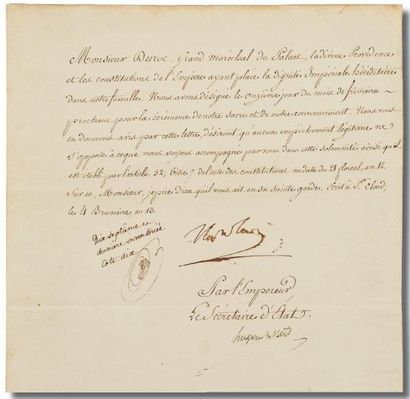 Monsieur Duroc, Grand maréchal du Palais, la divine Providence
et les constitutions de l'Empire ayant placé la dignité Impériale héréditaire
dans notre famille. Nous avons désigné le onzième jour du mois de frimaire
prochain pour la cérémonie de notre sacre et de notre couronnement. Nous vous
en donnons avis par cette lettre, désirant qu'aucun empêchement légitime ne
s'oppose à ce que nous soyons accompagné par vous dans cette solemnité, ainsi qu'il
est établi par l'article 52, titre 7 de l'acte des constitutions en date du 28 floréal, an 12.
Sur ce, Monsieur, je prie Dieu qu'il vous ait en sa sainte garde. écrit à St. Cloud,
les 4 Brumaire an 13.
Dix septième et
dernière
cote dix
Par l'Empereur
Le Secrétaire d'État.